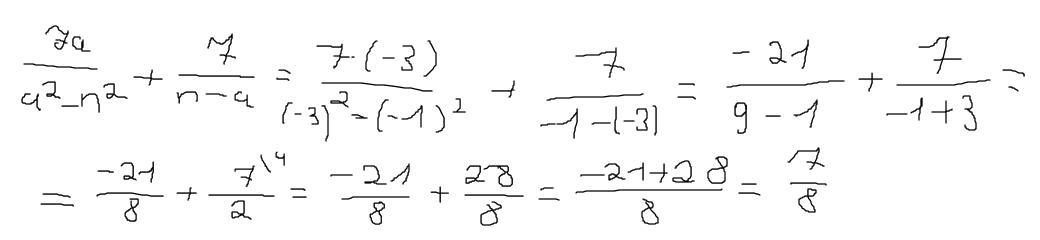 \frac{7a}{a^2-n^2} + \frac{7}{n-a} = \frac{7 \cdot (-3)}{(-3)^2-(-1)^2} + \frac{7}{-1-(-3)} = \frac{-21}{9-1} + \frac{7}{-1+3} =
= \frac{-21}{8} + \frac{7^{\backslash 4}}{2} = \frac{-21}{8} + \frac{28}{8} = \frac{-21+28}{8} = \frac{7}{8}